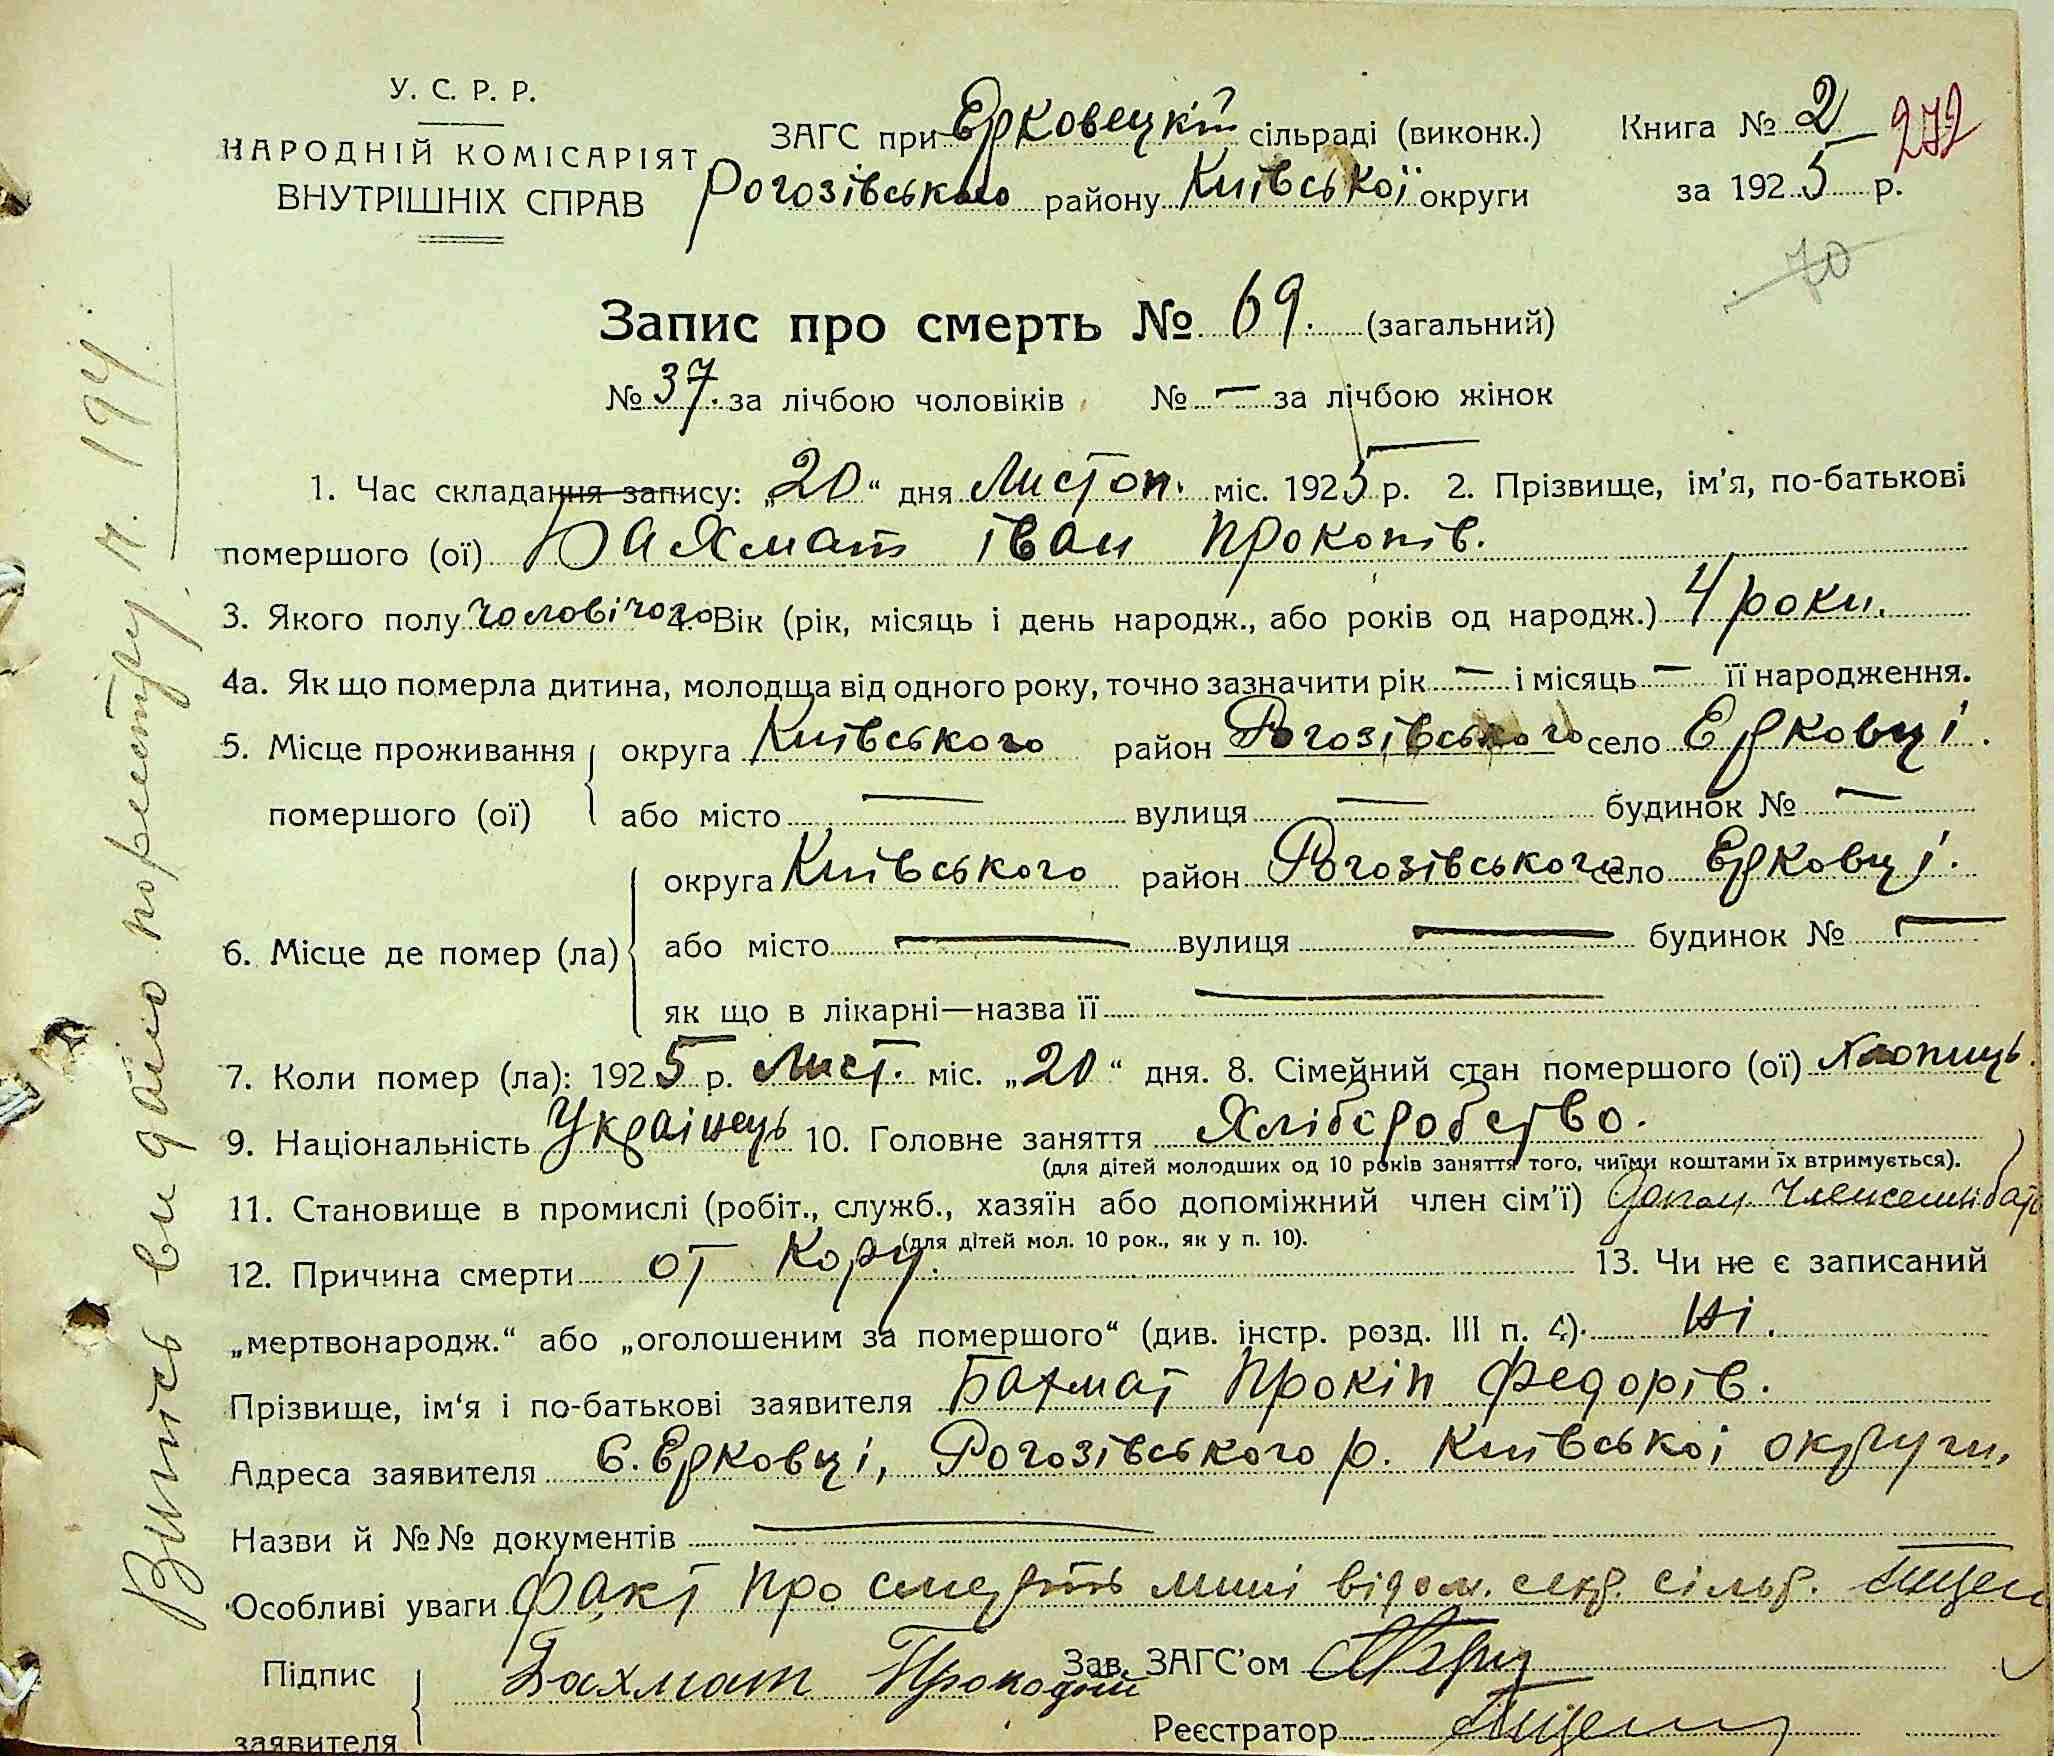 У. С. Р. Р.
НАРОДНІЙ КОМІСАРІЯТ
ВНУТРІШНІХ СПРАВ
ЗАГС при Ерковецкій сільраді (виконк.)
Рогозівського району Київської округи
Книга № 2 272
за 1925 р.
70
Запис про смерть № 69. (загальний)
№ 37. за лічбою чоловіків № — за лічбою жінок
1. Час складання запису: „20“ дня Листоп. міс. 1925 р. 2. Прізвище, ім'я, по-батькові
помершого (ої) Бахмат Іван Прокопів.
3. Якого полу чоловічого 4. Вік (рік, місяць і день народж., або років од народж.) 4 роки.
4а. Як що померла дитина, молодща від одного року, точно зазначити рік — і місяць — її народження.
5. Місце проживання округа Київського район Рогозівського село Ерковці.
помершого (ої) або місто — вулиця — будинок № —
округа Київського район Рогозівського село Ерковці.
6. Місце де помер (ла) або місто — вулиця — будинок № —
як що в лікарні—назва її —
7. Коли помер (ла): 1925 р. Лист. міс. „20“ дня. 8. Сімейний стан помершого (ої) Хлопиць.
9. Національність Українець 10. Головне заняття Хліборобство.
(для дітей молодших од 10 років заняття того, чиїми коштами їх втримується).
11. Становище в промислі (робіт., служб., хазяїн або допоміжний член сім'ї)
(для дітей мол. 10 рок., як у п. 10).
12. Причина смерти от Кору. 13. Чи не є записаний
„мертвонародж.“ або „оголошеним за помершого“ (див. інстр. розд. III п. 4). Ні.
Прізвище, ім'я і по-батькові заявителя Бахмат Прокіп Федорів.
Адреса заявителя с. Ерковці, Рогозівського р. Київської округи,
Назви й №№ документів —
Особливі уваги Факт про смерть мині відом. секр. сільр.
Підпис Бахмат Зав. ЗАГС'ом
заявителя Реєстратор
Випись видано по реєстру N. 194.